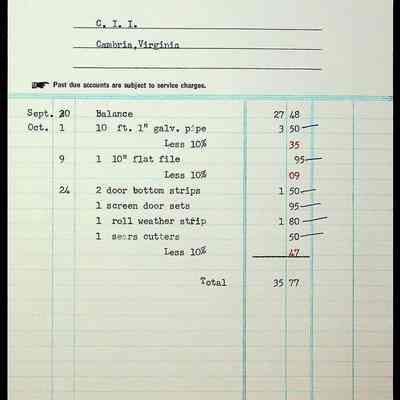 C. I. I.
Cambria,Virginia
Past due accounts are subject to service charges.
Sept. 20 Balance 27 48
Oct. 1 10 ft. 1" galv. pipe 3 50
Less 10% 35
9 1 10" flat file 95
Less 10% 09
24 2 door bottom strips 1 50
1 screen door sets 95
1 roll weather strip 1 80
1 sears cutters 50
Less 10% 47
Total 35 77